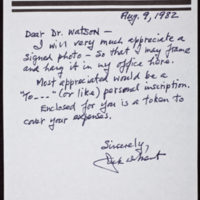 Aug. 9, 1982
Dear Dr. Watson —
I will very much appreciate a
signed photo — so that I may frame
and hang it in my office here.
Most appreciated would be a
"To---" (or like) personal inscription.
Enclosed for you is a token to
cover your expenses.
Sincerely,